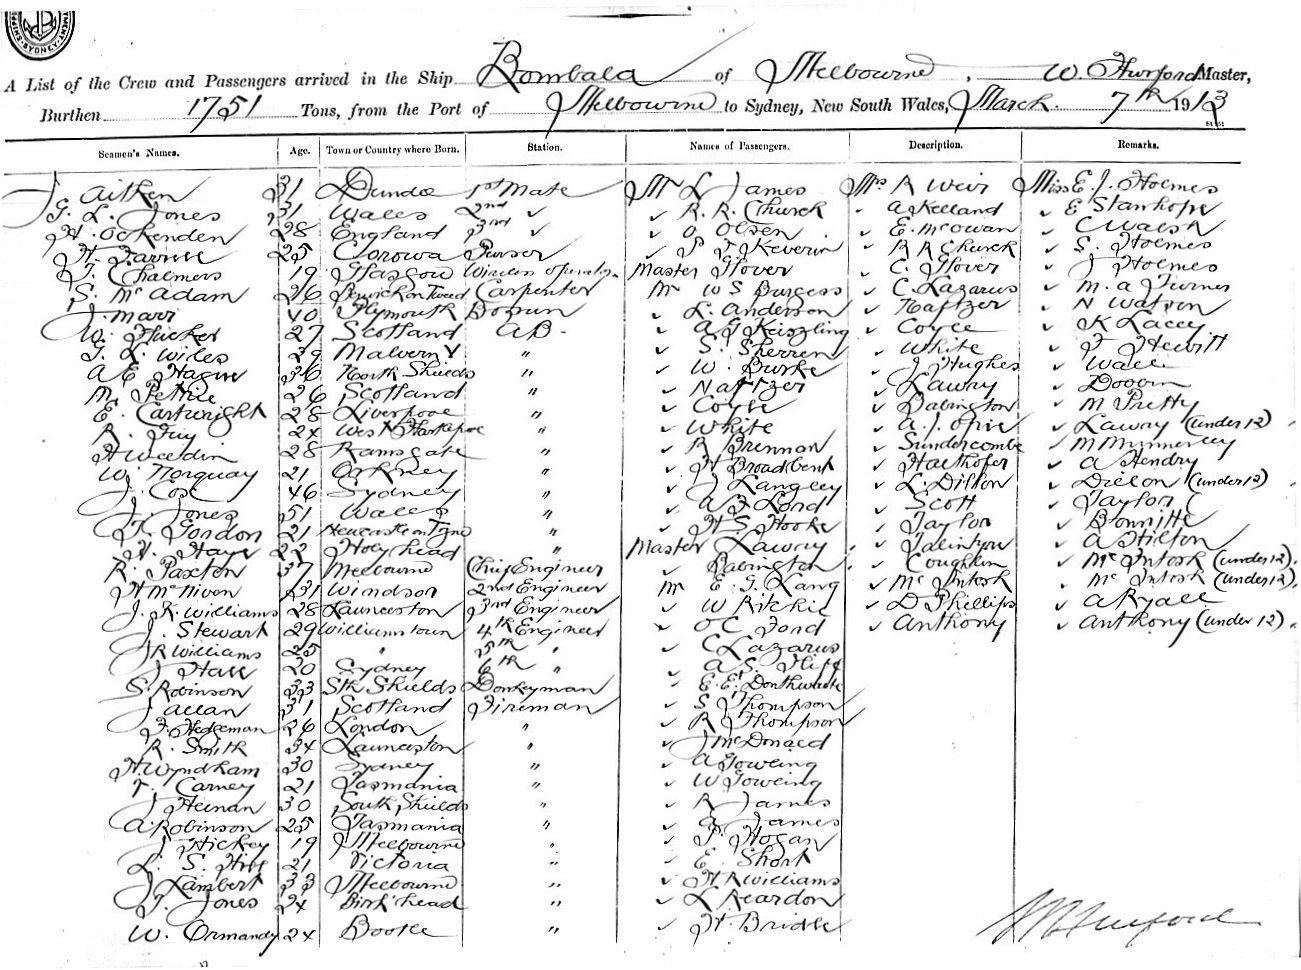 SYDNEY
A List of the Crew and Passengers arrived in the Ship Bombala of Melbourne, W. Hurford Master,
Burthen 1751 Tons, from the Port of Melbourne to Sydney, New South Wales, March 7th 1913
Seamen's Names. Age. Town or Country where Born. Station. Names of Passengers. Description. Remarks.
J Aitken 31 Dundee 1st Mate Mr L James Mrs R Weir Miss E. J. Holmes
G. L. Jones 31 Wales 2nd ✓ ✓ R. R. Church ✓ A Kelland ✓ E Stanhope
H. Ockenden 28 England 3rd ✓ ✓ O Olsen ✓ E. McOwan ✓ C Walsh
H. 25 Corowa Purser ✓ P J Keverin ✓ R R Church ✓ S. Holmes
J. Chalmers 19 Glasgow Wireless operator Master Glover ✓ C. Glover ✓ J Holmes
S. McAdam 26 Berwick on Tweed Carpenter Mr W S Burgess ✓ C. Lazarus ✓ M. A Turner
J. Marr 40 Plymouth Bosun ✓ L. Anderson ✓ Naftzer ✓ N Watson
W. Tucker 27 Scotland AB. ✓ A J Keiszling ✓ Coyle ✓ K Lacey
T. L. Wiles 29 Malvern V " ✓ S. Sherren ✓ White ✓ J Hewitt
A E. Hague 36 North Shields " ✓ W. Burke ✓ J Hughes ✓ Wall
M. Petrie 26 Scotland " ✓ Naftzer ✓ Lawry ✓
E. Cartwright 28 Liverpool " ✓ Coyle ✓ Babington ✓ M Pretty
R. 24 West Hartlepool " ✓ White ✓ A. J. Opie ✓ Lawry (under 12)
H Weedin 28 Ramsgate " ✓ R Brennan ✓ Sundercombe ✓ M
W. Norquay 21 Orkney " ✓ H Broadbent ✓ Halthofer ✓ A Hendry
J. Cox 46 Sydney " ✓ J Langley ✓ L. Dillon ✓ Dillon (under 12)
J. Jones 51 Wales " ✓ A J Lond ✓ Scott ✓ Taylor
Gordon 21 Newcastle on Tyne " ✓ H S Hooke ✓ Taylor ✓
H. Haye 22 Holyhead " Master Lawry ✓ ✓ A Hilton
R. Paxton 37 Melbourne Chief Engineer ✓ Babington ✓ Coughlin ✓ McIntosh (under 12)
H McNiven 31 Windsor 2nd Engineer Mr E. G. Lang ✓ McIntosh ✓ McIntosh (under 12)
J. R. Williams 28 Launceston 3rd Engineer ✓ W Ritchie ✓ D Phillips ✓ A Ryall
J. Stewart 29 Williamstown 4th Engineer ✓ O C Ford ✓ Anthony ✓ Anthony (under 12)
J R Williams 25 " 5th " ✓ C Lazarus
J Hall 20 Sydney 6th " ✓ A. S.
S. Robinson 33 Sth Shields Donkeyman ✓ E. E. Donthwaite
J Allan 31 Scotland Fireman ✓ S Thompson
J. Hedgeman 26 London " ✓ R Thompson
R. Smith 34 Launceston " ✓ J McDonald
H. Wyndham 30 Sydney " ✓ A Goweing
T. Carney 21 Tasmania " ✓ W Goweing
J Heenan 30 South Shields " ✓ R James
A. Robinson 25 Tasmania " ✓ A James
J Hickey 19 Melbourne " ✓ P. Hogan
L. S. 21 Victoria " ✓ E. Short
J Lambert 33 Melbourne " ✓ H R Williams
J. Jones 24 Birk'head " ✓ L Reardon
W. Ormandy 24 Bootle " ✓ H. Bridle
Hurford